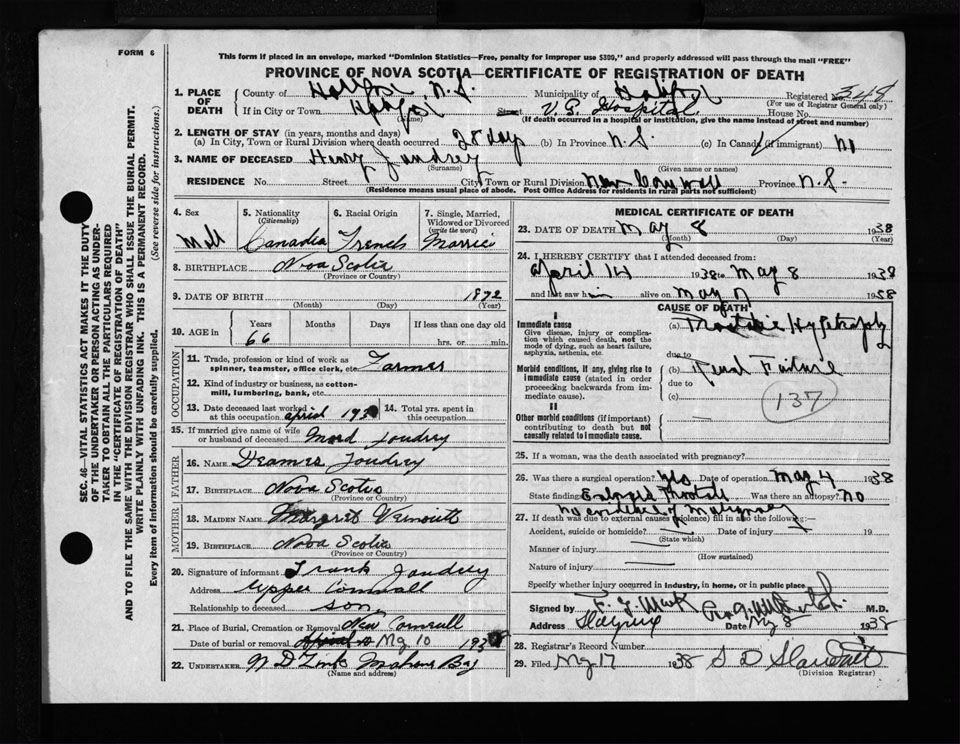 FORM 6
This form if placed in an envelope, marked "Dominion Statistics—Free, penalty for improper use $300," and properly addressed will pass through the mail "FREE"
PROVINCE OF NOVA SCOTIA—CERTIFICATE OF REGISTRATION OF DEATH
1. PLACE OF DEATH
County of Halifax, N.S. Municipality of Halifax Registered No. 348
(For use of Registrar General only)
If in City or Town Halifax (Name) Street V.G. Hospital House No.
(If death occurred in a hospital or institution, give the name instead of street and number)
2. LENGTH OF STAY (in years, months and days)
(a) In City, Town or Rural Division where death occurred 25 day (b) In Province N.S. (c) In Canada (if immigrant) no
3. NAME OF DECEASED Henry Joudrey
(Surname) (Given name or names)
RESIDENCE No. Street City, Town or Rural Division New Cornwall Province N.S.
(Residence means usual place of abode. Post Office Address for residents in rural parts not sufficient)
4. Sex Male
5. Nationality (Citizenship) Canadia
6. Racial Origin French
7. Single, Married, Widowed or Divorced (write the word) Married
8. BIRTHPLACE Nova Scotia
(Province or Country)
9. DATE OF BIRTH 1872
(Month) (Day) (Year)
10. AGE in Years Months Days If less than one day old
66 hrs. or min.
OCCUPATION
11. Trade, profession or kind of work as spinner, teamster, office clerk, etc. Farmer
12. Kind of industry or business, as cotton-mill, lumbering, bank, etc.
13. Date deceased last worked at this occupation april 193
14. Total yrs. spent in this occupation
15. If married give name of wife or husband of deceased Joudrey
FATHER
16. NAME Joudrey
17. BIRTHPLACE Nova Scotia
(Province or Country)
MOTHER
18. MAIDEN NAME Margret
19. BIRTHPLACE Nova Scotia
(Province or Country)
20. Signature of informant Frank Joudrey
Address Upper Cornwall
Relationship to deceased son
21. Place of Burial, Cremation or Removal New Cornwall
Date of burial or removal My 10 193
22. UNDERTAKER Mahone Bay
(Name and address)
MEDICAL CERTIFICATE OF DEATH
23. DATE OF DEATH May 8 1938
(Month) (Day) (Year)
24. I HEREBY CERTIFY that I attended deceased from:
April 14 1938 to May 8 1938
and last saw him alive on May 7 1938
CAUSE OF DEATH
I
Immediate cause
Give disease, injury or complication which caused death, not the mode of dying, such as heart failure, asphyxia, asthenia, etc.
(a) Prostatic Hypertrophy
due to
Morbid conditions, if any, giving rise to immediate cause (stated in order proceeding backwards from immediate cause).
(b) Renal Failure
due to
(c)
137
II
Other morbid conditions (if important) contributing to death but not causally related to immediate cause.
25. If a woman, was the death associated with pregnancy?
26. Was there a surgical operation? yes Date of operation May 4 1938
State finding Enlarged Prostate Was there an autopsy? no
no evidence of malignancy
27. If death was due to external causes (violence) fill in also the following:—
Accident, suicide or homicide? Date of injury 19
(State which)
Manner of injury
(How sustained)
Nature of injury
Specify whether injury occurred in industry, in home, or in public place.
Signed by M.D.
Address Date My 8 1938
28. Registrar's Record Number
29. Filed My 17 1938
(Division Registrar)
SEC. 46—VITAL STATISTICS ACT MAKES IT THE DUTY OF THE UNDERTAKER OR PERSON ACTING AS UNDERTAKER TO OBTAIN ALL THE PARTICULARS REQUIRED IN THE "CERTIFICATE OF REGISTRATION OF DEATH"
AND TO FILE THE SAME WITH THE DIVISION REGISTRAR WHO SHALL ISSUE THE BURIAL PERMIT.
WRITE PLAINLY WITH UNFADING INK. THIS IS A PERMANENT RECORD.
Every item of information should be carefully supplied. (See reverse side for instructions.)